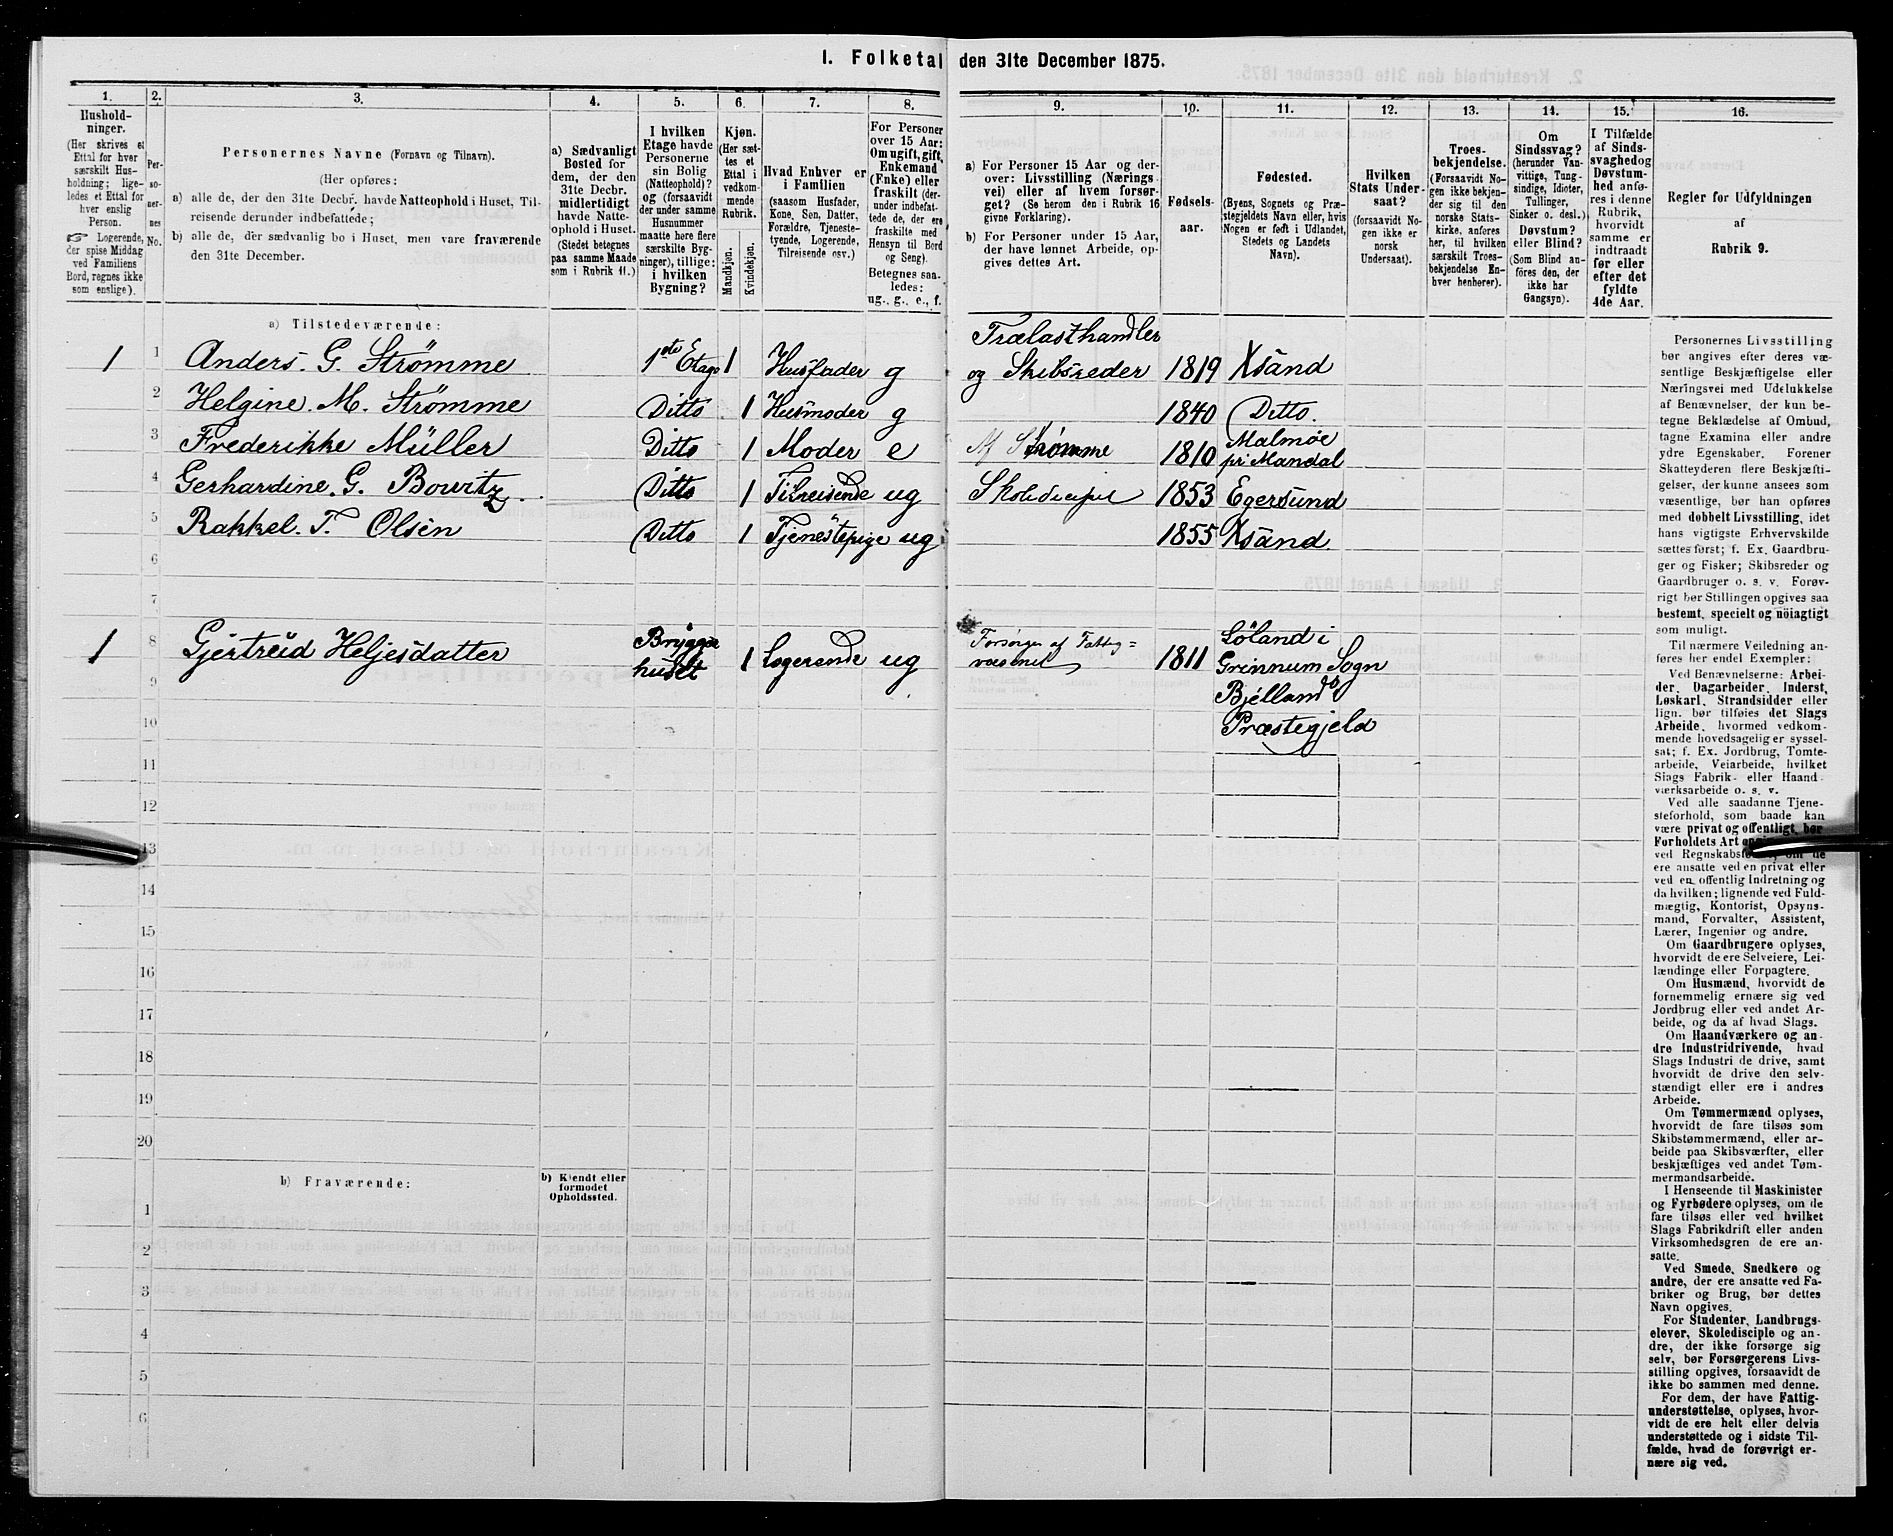 I. Folketal den 31te December 1875.
1. 2. 3. 4. 5. 6. 7. 8. 9. 10. 11. 12. 13. 14. 15. 16.
Hushold-
ninger.
(Her skrives et
Ettal for hver
særskilt Hus-
holdning; lige-
ledes et Ettal for
hver enslig
Person.
☞ Logerende,
der spise Middag
ved Familiens
Bord, regnes ikke
som enslige).
Per-
so-
ner-
nes
No.
Personernes Navne (Fornavn og Tilnavn).
(Her opføres:
a) alle de, der den 31te Decbr. havde Natteophold i Huset, Til-
reisende derunder indbefattede;
b) alle de, der sædvanlig bo i Huset, men vare fraværende
den 31te December.
a) Sædvanligt
Bosted for
dem, der den
31te Decbr.
midlertidigt
havde Natte-
ophold i Huset.
(Stedet betegnes
paa samme Maade
som i Rubrik 11.)
I hvilken
Etage havde
Personerne
sin Bolig
(Natteophold)?
og (forsaavidt
der under samme
Husnummer
maatte høre flere
særskilte Byg-
ninger), tillige:
i hvilken
Bygning?
Kjøn.
(Her sæt-
tes et
Ettal i
vedkom-
mende
Rubrik.
Mandkjøn.
Kvindekjøn.
Hvad Enhver er
i Familien
(saasom Husfader,
Kone, Søn, Datter,
Forældre, Tjeneste-
tyende, Logerende,
Tilreisende osv.)
For Personer
over 15 Aar:
Om ugift, gift,
Enkemand
(Enke) eller
fraskilt (der-
under indbefat-
tede de, der ere
fraskilte med
Hensyn til Bord
og Seng).
Betegnes saa-
ledes:
ug., g., e., f.
a) For Personer 15 Aar og der-
over: Livsstilling (Nærings-
vei) eller af hvem forsør-
get? (Se herom den i Rubrik 16
givne Forklaring).
b) For Personer under 15 Aar,
der have lønnet Arbeide, op-
gives dettes Art.
Fødsels-
aar.
Fødested.
(Byens, Sognets og Præ-
stegjeldets Navn eller, hvis
Nogen er født i Udlandet,
Stedets og Landets
Navn).
Hvilken
Stats Under-
saat?
(forsaavidt No-
gen ikke er
norsk
Undersaat).
Troes-
bekjendelse.
(Forsaavidt No-
gen ikke bekjen-
der sig til den
norske Stats-
kirke, anføres
her, til hvilken
særskilt Troes-
bekjendelse En-
hver henhører).
Om
Sindssvag?
(herunder Van-
vittige, Tung-
sindige, Idioter,
Tullinger,
Sinker o. desl.)
Døvstum?
eller Blind?
(Som Blind an-
føres den, der
ikke har
Gangsyn).
I Tilfælde
af Sinds-
svaghed og
Døvstum-
hed anfø-
res i denne
Rubrik,
hvorvidt
samme er
indtraadt
før eller
efter det
fyldte
4de Aar.
Regler for Udfyldningen
af
Rubrik 9.
a) Tilstedeværende:
Trælasthandler
1 1 Anders. G. Strømme 1ste Etage 1 Husfader g og Skibsreder 1819 Xsand
2 Helgine. M. Strømme Ditto 1 Husmoder g 1840 Ditto.
3 Frederikke Müller Ditto 1 Moder e Af Strømme 1810 Malmøe
pr Mandal
4 Gerhardine. G. Bowitz. Ditto 1 Tilreisende ug Skoledicipel 1853 Egersund
5 Rakkel. T. Olsen Ditto 1 Tjenestepige ug 1855 Xsand.
6
7
1 8 Gjertrud Heljesdatter Brygger
huset 1 Logerende ug Forsørges af Fattig=
væsenet 1811 Löland i
9 Grinnum Sogn
Bjelland
10 Præstegjeld
11
12
13
14
15
16
17
18
19
20
b) Fraværende:
b) Kjendt eller
formodet
Opholdssted.
1
2
3
4
5
6
Personernes Livsstilling
bør angives efter deres væ-
sentlige Beskjæftigelse eller
Næringsvei med Udelukkelse
af Benævnelser, der kun be-
tegne Beklædelse af Ombud,
tagne Examina eller andre
ydre Egenskaber. Forener
Skatteyderen flere Beskjæfti-
gelser, der kunne ansees som
væsentlige, bør han opføres
med dobbelt Livsstilling, idet
hans vigtigste Erhvervskilde
sættes først; f. Ex. Gaardbru-
ger og Fisker; Skibsreder og
Gaardbruger o. s. v. Forøv-
rigt bør Stillingen opgives saa
bestemt, specielt og nöiagtigt
som muligt.
Til nærmere Veiledning an-
føres her endel Exempler:
Ved Benævnelserne: Arbei-
der, Dagarbeider, Inderst,
Løskarl, Strandsidder eller
lign. bør tilføies det Slags
Arbeide, hvormed vedkom-
mende hovedsagelig er syssel-
sat; f. Ex. Jordbrug, Tomte-
arbeide, Veiarbeide, hvilket
Slags Fabrik- eller Haand-
værksarbeide o. s. v.
Ved alle saadanne Tjene-
steforhold, som baade kan
være privat og offentligt, bør
Forholdets Art
ved
ere ansatte ved en privat eller
ved en offentlig Indretning og
da hvilken; lignende ved Fuld-
mægtig, Kontorist, Opsyns-
mand, Forvalter, Assistent,
Lærer, Ingeniør og andre.
Om Gaardbrugere oplyses,
hvorvidt de ere Selveiere, Lei-
lændinge eller Forpagtere.
Om Husmænd, hvorvidt de
fornemmelig ernære sig ved
Jordbrug eller ved andet Ar-
beide, og da af hvad Slags.
Om Haandværkere og an-
dre Industridrivende, hvad
Slags Industri de drive, samt
hvorvidt de drive den selv-
stændigt eller ere i andres
Arbeide.
Om Tømmermænd oplyses,
hvorvidt de fare tilsøs som
Skibstømmermænd, eller ar-
beide paa Skibsværfter, eller
beskjæftiges ved andet Tøm-
mermandsarbeide.
I Henseende til Maskinister
og Fyrbødere oplyses, om de
fare tilsøs eller ved hvilket
Slags Fabrikdrift eller anden
Virksomhedsgren de ere an-
satte.
Ved Smede, Snedkere og
andre, der ere ansatte ved Fa-
briker og Brug, bør dettes
Navn opgives.
For Studenter, Landbrugs-
elever, Skoledisciple og an-
dre, der ikke forsørge sig
selv, bør Forsørgerens Livs-
stilling opgives, forsaavidt de
ikke bo sammen med denne.
For dem, der have Fattig-
understøttelse, oplyses, hvor-
vidt de ere helt eller delvis
understøttede og i sidste Til-
fælde, hvad de forøvrigt er-
nære sig ved.